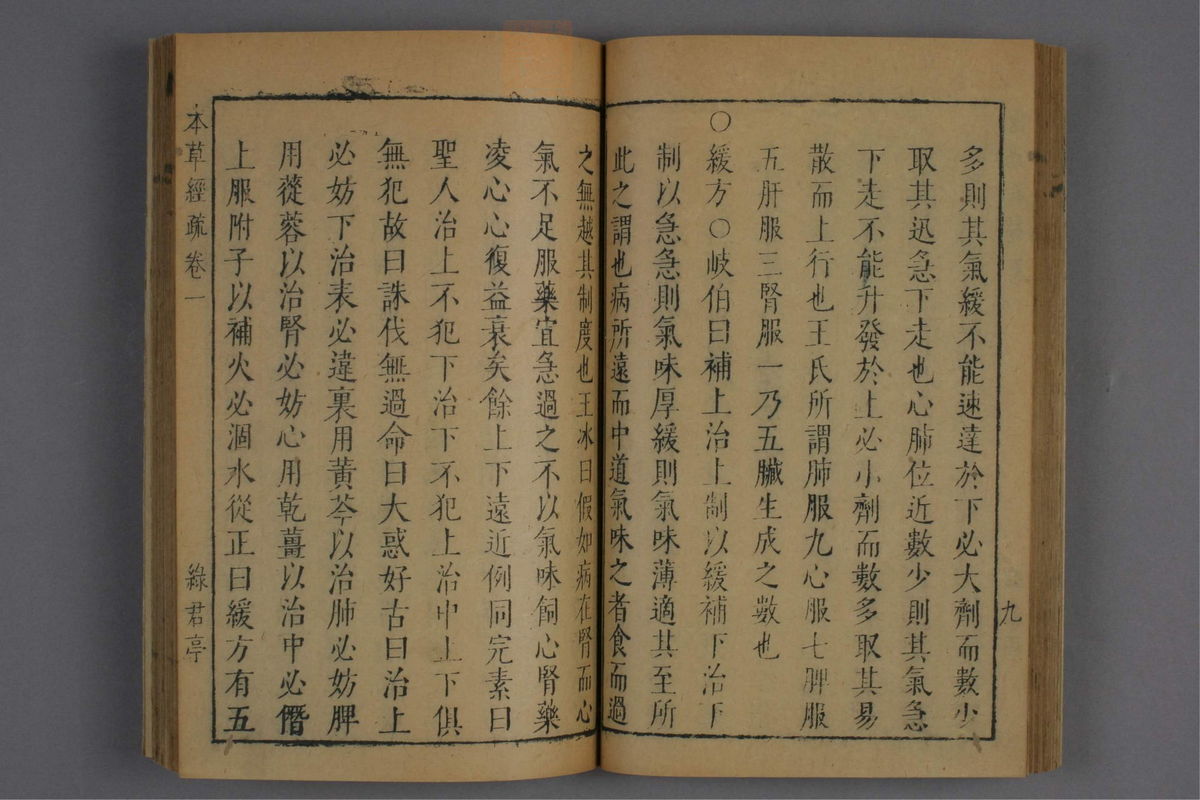 多則其氣緩不能速達於下必大劑而數少
取其迅急下走也心肺位近數少則其氣急
下走不能升發於上必小劑而數多取其易
散而上行也王氏所謂肺服九心服七脾服
五肝服三腎服一乃五臟生成之數也
〇緩方〇岐伯曰補上治上制以緩補下治下
制以急急則氣味厚緩則氣味薄適其至所
此之謂也病所遠而中道氣味之者食而過
九
之無越其制度也王冰曰假如病在腎而心
氣不足服藥宜急過之不以氣味飼心腎藥
凌心心復益衰矣餘上下遠近例同完素曰
聖人治上不犯下治下不犯上治中上下俱
無犯故曰誅伐無過命曰大惑好古曰治上
必妨下治表必違裏用黃芩以治肺必妨脾
用蓯蓉以治腎必妨心用乾薑以治中必僭
上服附子以補火必涸水從正曰緩方有五
本草經疏卷一
綠君亭